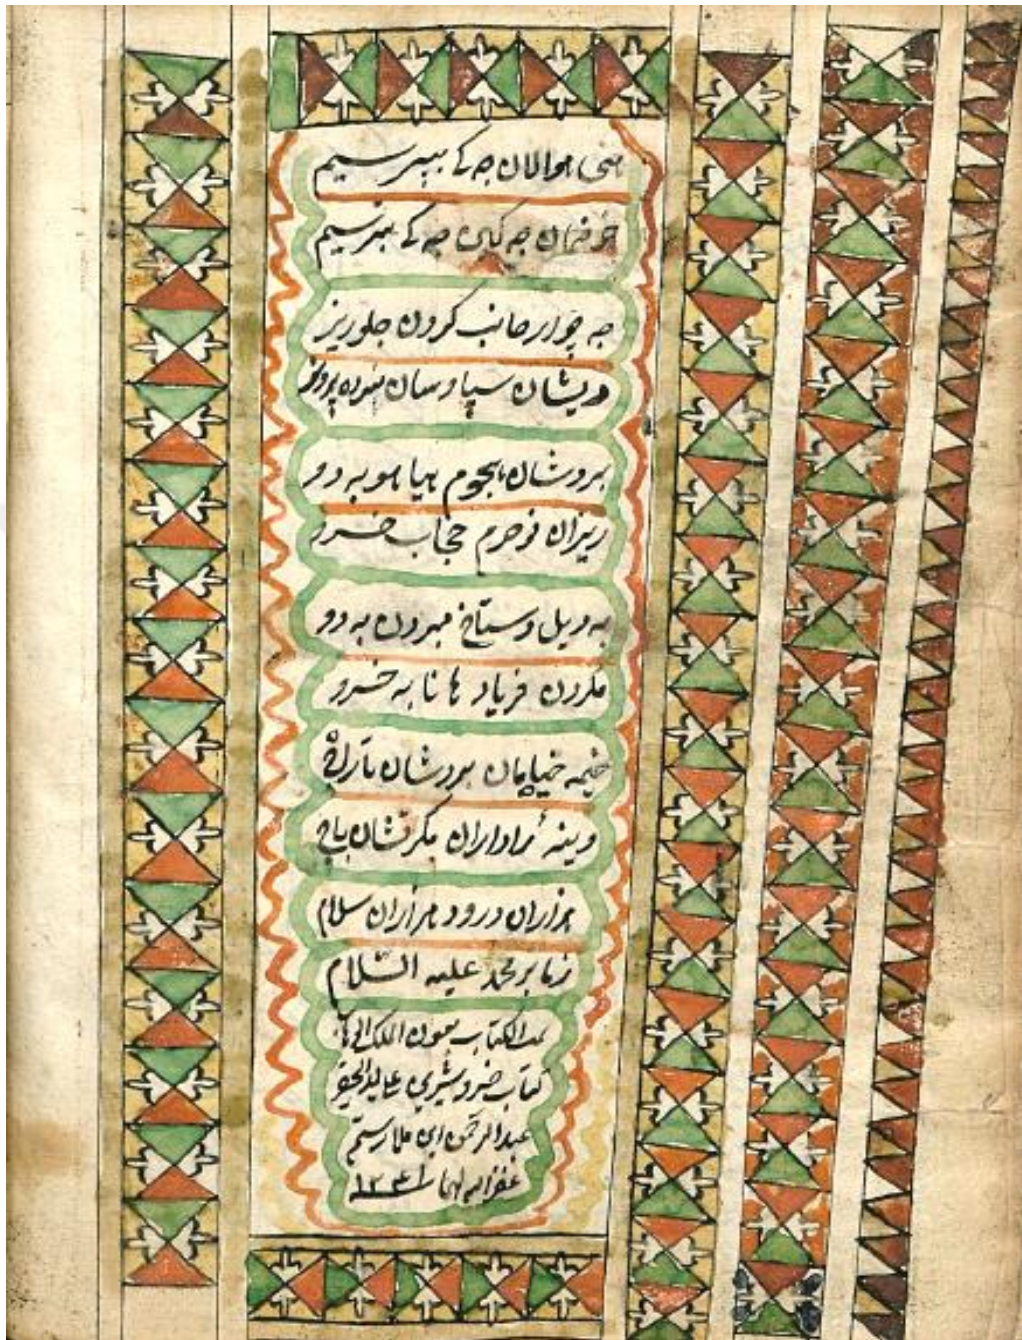 هنی هوالان جه کے بپرسیم
جه کے بپرسیم
جه چوار جانب کردن جلوریز
میشان سپا وسان
بردشان هجوم هیا هو به دو
ریزان نو حرم حجاب خسرو
به دیل وستاخ مبردن به دو
مکردن فریاد هانا به خسرو
خیمه خیاپان بردشان تاراج
وینهٔ راداران مکرفتشان باج
هزاران درود هزاران سلام
زما بر محمد علیه السلام
تمت الکتاب بعون الملک الوهاب
کتاب خسرو شیرین عن ید الحقیر
عبدالرحمن ابن ملا رستم
غفرالله لهما